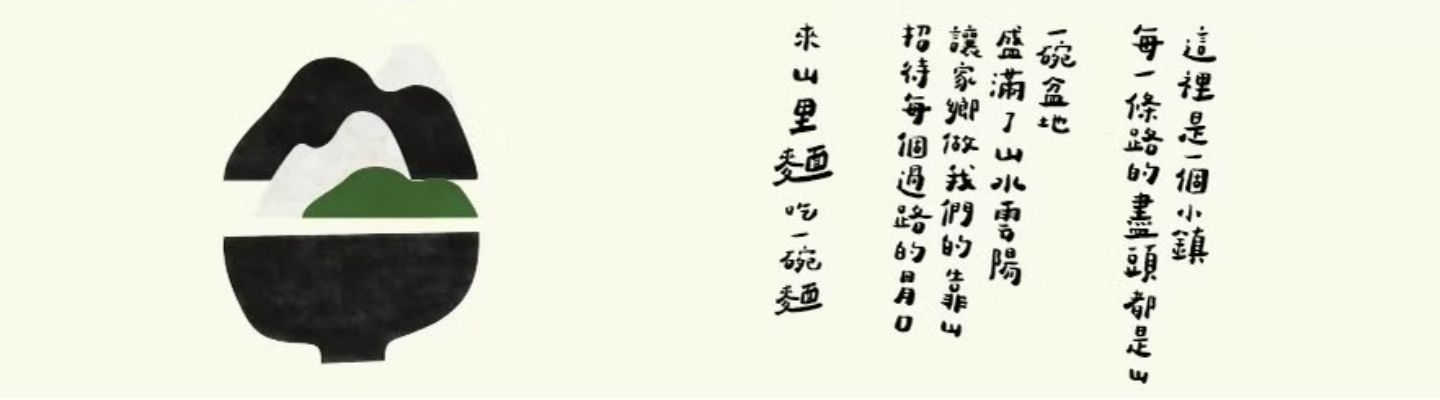 這裡是一個小鎮
每一條路的盡頭都是山
一碗盆地
盛滿了山水雲陽
讓家鄉做我們的靠山
招待每個過路的胃口
來山里麵吃一碗麵